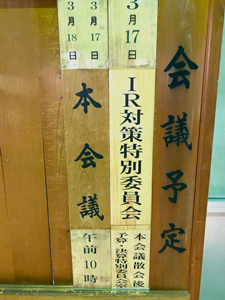 会議予定
3月17日
IR対策特別委員会
本会議散会後
予算・決算特別委員会室
3月17日
3月18日
本会議
午前10時